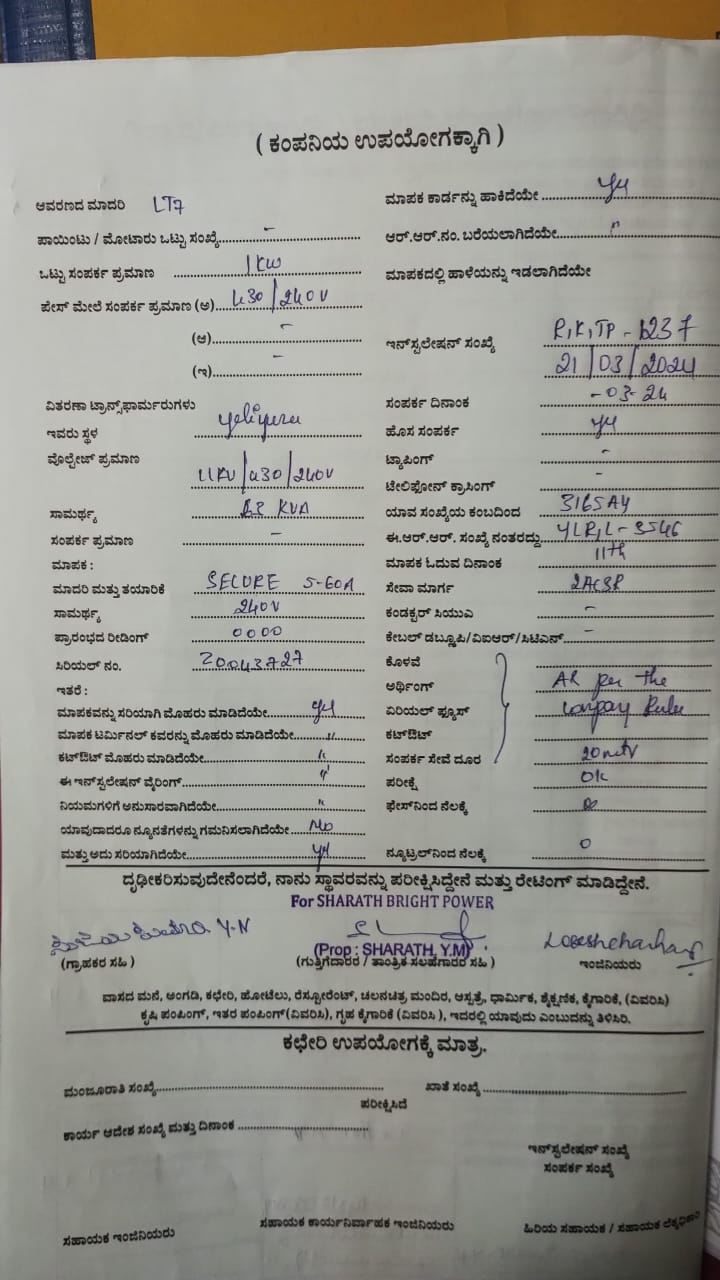 ( ಕಂಪನಿಯ ಉಪಯೋಗಕ್ಕಾಗಿ )
ಆವರಣದ ಮಾದರಿ LT7
ಮಾಪಕ ಕಾರ್ಡನ್ನು ಹಾಕಿದೆಯೇ
ಪಾಯಿಂಟು / ಮೋಟಾರು ಒಟ್ಟು ಸಂಖ್ಯೆ -
ಆರ್.ಆರ್.ನಂ. ಬರೆಯಲಾಗಿದೆಯೇ "
ಒಟ್ಟು ಸಂಪರ್ಕ ಪ್ರಮಾಣ 1 KW
ಮಾಪಕದಲ್ಲಿ ಹಾಳೆಯನ್ನು ಇಡಲಾಗಿದೆಯೇ
ಪೇಸ್ ಮೇಲೆ ಸಂಪರ್ಕ ಪ್ರಮಾಣ (ಅ) 430/240V
(ಆ) -
ಇನ್‌ಸ್ಟಲೇಷನ್ ಸಂಖ್ಯೆ
21/03/2024
(ಇ) -
ವಿತರಣಾ ಟ್ರಾನ್ಸ್‌ಫಾರ್ಮರುಗಳು
ಸಂಪರ್ಕ ದಿನಾಂಕ -03-24
ಇವರು ಸ್ಥಳ
ಹೊಸ ಸಂಪರ್ಕ
ವೊಲ್ಟೇಜ್ ಪ್ರಮಾಣ 11KV/430/240V
ಟ್ಯಾಪಿಂಗ್ -
ಟೇಲಿಫೋನ್ ಕ್ರಾಸಿಂಗ್ -
ಸಾಮರ್ಥ್ಯ KVA
ಯಾವ ಸಂಖ್ಯೆಯ ಕಂಬದಿಂದ
ಸಂಪರ್ಕ ಪ್ರಮಾಣ -
ಈ.ಆರ್.ಆರ್. ಸಂಖ್ಯೆ ನಂತರದ್ದು
ಮಾಪಕ :
ಮಾಪಕ ಓದುವ ದಿನಾಂಕ 11th
ಮಾದರಿ ಮತ್ತು ತಯಾರಿಕೆ SECURE 5-60A
ಸೇವಾ ಮಾರ್ಗ
ಸಾಮರ್ಥ್ಯ 240V
ಕಂಡಕ್ಟರ್ ಸಿಯುಎ -
ಪ್ರಾರಂಭದ ರೀಡಿಂಗ್ 0000
ಕೇಬಲ್ ಡಬ್ಲ್ಯೂಪಿ/ವಿಐಆರ್/ಸಿಟಿಎನ್ -
ಸಿರಿಯಲ್ ನಂ. 20043727
ಕೊಳವೆ
ಇತರೆ :
ಅರ್ಥಿಂಗ್ As per the
ಮಾಪಕವನ್ನು ಸರಿಯಾಗಿ ಮೊಹರು ಮಾಡಿದೆಯೇ
ಏರಿಯಲ್ ಫ್ಯೂಸ್ company Rules
ಮಾಪಕ ಟರ್ಮಿನಲ್ ಕವರನ್ನು ಮೊಹರು ಮಾಡಿದೆಯೇ "
ಕಟ್‌ಔಟ್
ಕಟ್‌ಔಟ್ ಮೊಹರು ಮಾಡಿದೆಯೇ "
ಸಂಪರ್ಕ ಸೇವೆ ದೂರ 20 mtr
ಈ ಇನ್‌ಸ್ಟಲೇಷನ್ ವೈರಿಂಗ್ "
ಪರೀಕ್ಷೆ OK
ನಿಯಮಗಳಿಗೆ ಅನುಸಾರವಾಗಿದೆಯೇ "
ಫೇಸ್‌ನಿಂದ ನೆಲಕ್ಕೆ ∞
ಯಾವುದಾದರೂ ನ್ಯೂನತೆಗಳನ್ನು ಗಮನಿಸಲಾಗಿದೆಯೇ No
ಮತ್ತು ಅದು ಸರಿಯಾಗಿದೆಯೇ
ನ್ಯೂಟ್ರಲ್‌ನಿಂದ ನೆಲಕ್ಕೆ 0
ದೃಢೀಕರಿಸುವುದೇನೆಂದರೆ, ನಾನು ಸ್ಥಾವರವನ್ನು ಪರೀಕ್ಷಿಸಿದ್ದೇನೆ ಮತ್ತು ರೇಟಿಂಗ್ ಮಾಡಿದ್ದೇನೆ.
For SHARATH BRIGHT POWER
Y.N
(Prop : SHARATH, Y.M)
(ಗ್ರಾಹಕರ ಸಹಿ)
(ಗುತ್ತಿಗೆದಾರರ / ತಾಂತ್ರಿಕ ಸಲಹೆಗಾರರ ಸಹಿ )
ಇಂಜಿನಿಯರು
ವಾಸದ ಮನೆ, ಅಂಗಡಿ, ಕಛೇರಿ, ಹೋಟೆಲು, ರೆಸ್ಟೋರೆಂಟ್, ಚಲನಚಿತ್ರ ಮಂದಿರ, ಆಸ್ಪತ್ರೆ, ಧಾರ್ಮಿಕ, ಶೈಕ್ಷಣಿಕ, ಕೈಗಾರಿಕೆ, (ವಿವರಿಸಿ)
ಕೃಷಿ ಪಂಪಿಂಗ್, ಇತರ ಪಂಪಿಂಗ್(ವಿವರಿಸಿ), ಗೃಹ ಕೈಗಾರಿಕೆ (ವಿವರಿಸಿ ), ಇದರಲ್ಲಿ ಯಾವುದು ಎಂಬುದನ್ನು ತಿಳಿಸಿರಿ.
ಕಛೇರಿ ಉಪಯೋಗಕ್ಕೆ ಮಾತ್ರ.
ಮಂಜೂರಾತಿ ಸಂಖ್ಯೆ
ಖಾತೆ ಸಂಖ್ಯೆ
ಪರೀಕ್ಷಿಸಿದೆ
ಕಾರ್ಯ ಆದೇಶ ಸಂಖ್ಯೆ ಮತ್ತು ದಿನಾಂಕ
ಇನ್‌ಸ್ಟಲೇಷನ್ ಸಂಖ್ಯೆ
ಸಂಪರ್ಕ ಸಂಖ್ಯೆ
ಸಹಾಯಕ ಇಂಜಿನಿಯರು
ಸಹಾಯಕ ಕಾರ್ಯನಿರ್ವಾಹಕ ಇಂಜಿನಿಯರು
ಹಿರಿಯ ಸಹಾಯಕ / ಸಹಾಯಕ ಲೆಕ್ಕಧಿಕಾರಿ